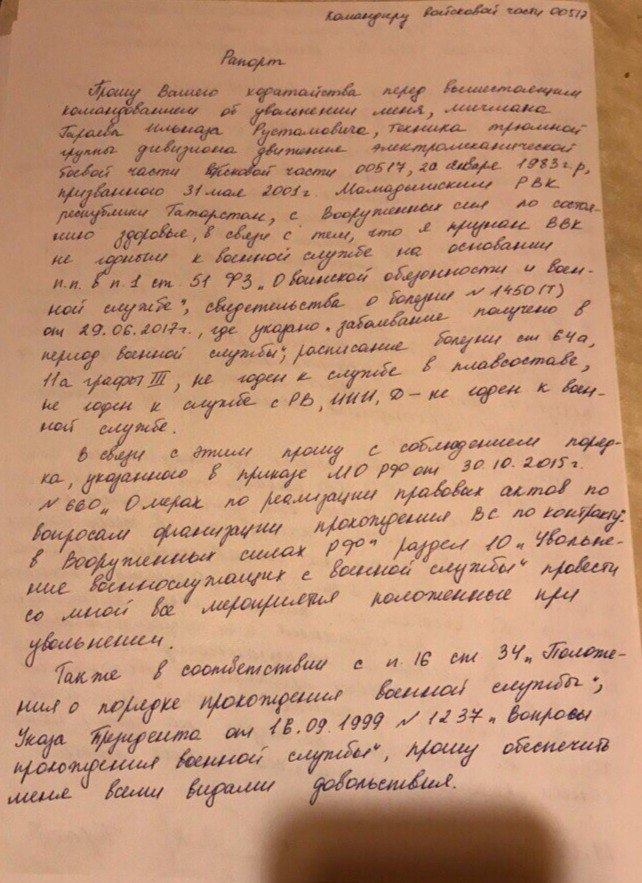 Командиру войсковой части 00517
Рапорт
Прошу Вашего ходатайства перед вышестоящим
командованием об увольнении меня, мичмана
Гараева Ильназа Рустамовича, техника трюмной
группы дивизиона движения электромеханической
боевой части войсковой части 00517, 20 января 1983 г.р,
призванного 31 мая 2001г. Мамадышским РВК
республики Татарстан, с Вооруженных сил по состоя-
нию здоровья, в связи с тем, что я признан ВВК
не годным к военной службе на основании
п.п. в п.1 ст. 51 ФЗ „О воинской обязонности и воен-
ной службе“, свидетельства о болезни N 1450 (Т)
от 29.06.2017г., где указано „заболевание получено в
период военной службы“, расписание болезни ст 64а,
11а графы III, не годен к службе в плавсоставе,
не годен к службе с РВ, ИИИ, Д – не годен к воен-
ной службе.
В связи с этим прошу с соблюдением поряд-
ка, указанного в приказе МО РФ от 30.10.2015г.
N 660 „О мерах по реализации правовых актов по
вопросам организации прохождения ВС по контракту
в Вооруженных силах РФ“ раздел 10 „Увольне-
ние военнослужащих с военной службы“ провести
со мной все мероприятия положенные при
увольнением.
Также в соответствии с п. 16 ст 34 „Положе-
ния о порядке прохождения военной службы“,
Указа Президента от 16.09.1999 N 1237 „Вопросы
прохождения военной службы“, прошу обеспечить
меня всеми видами довольствия.